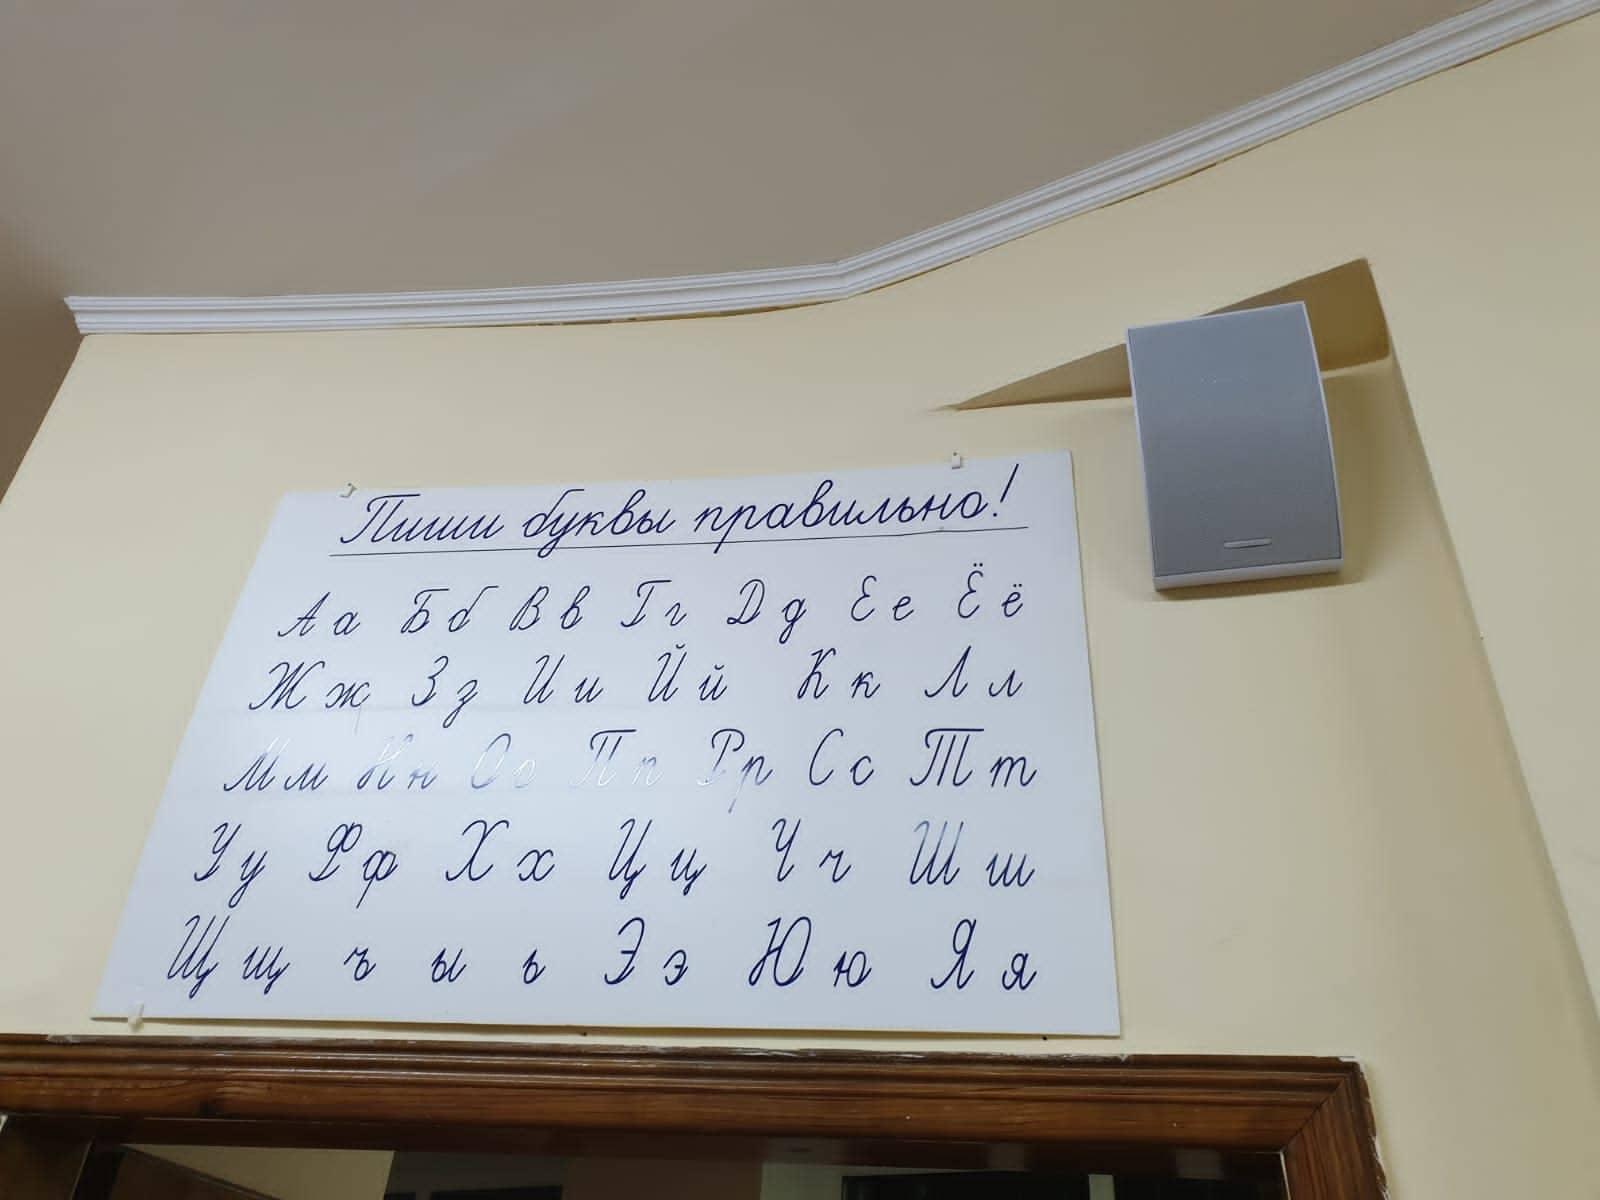 Пиши буквы правильно!
Аа Бб Вв Гг Дд Ее Ёё
Жж Зз Ии Йй Кк Лл
Мм Нн Оо Пп Рр Сс Тт
Уу Фф Хх Цц Чч Шш
Щщ ъ ы ь Ээ Юю Яя